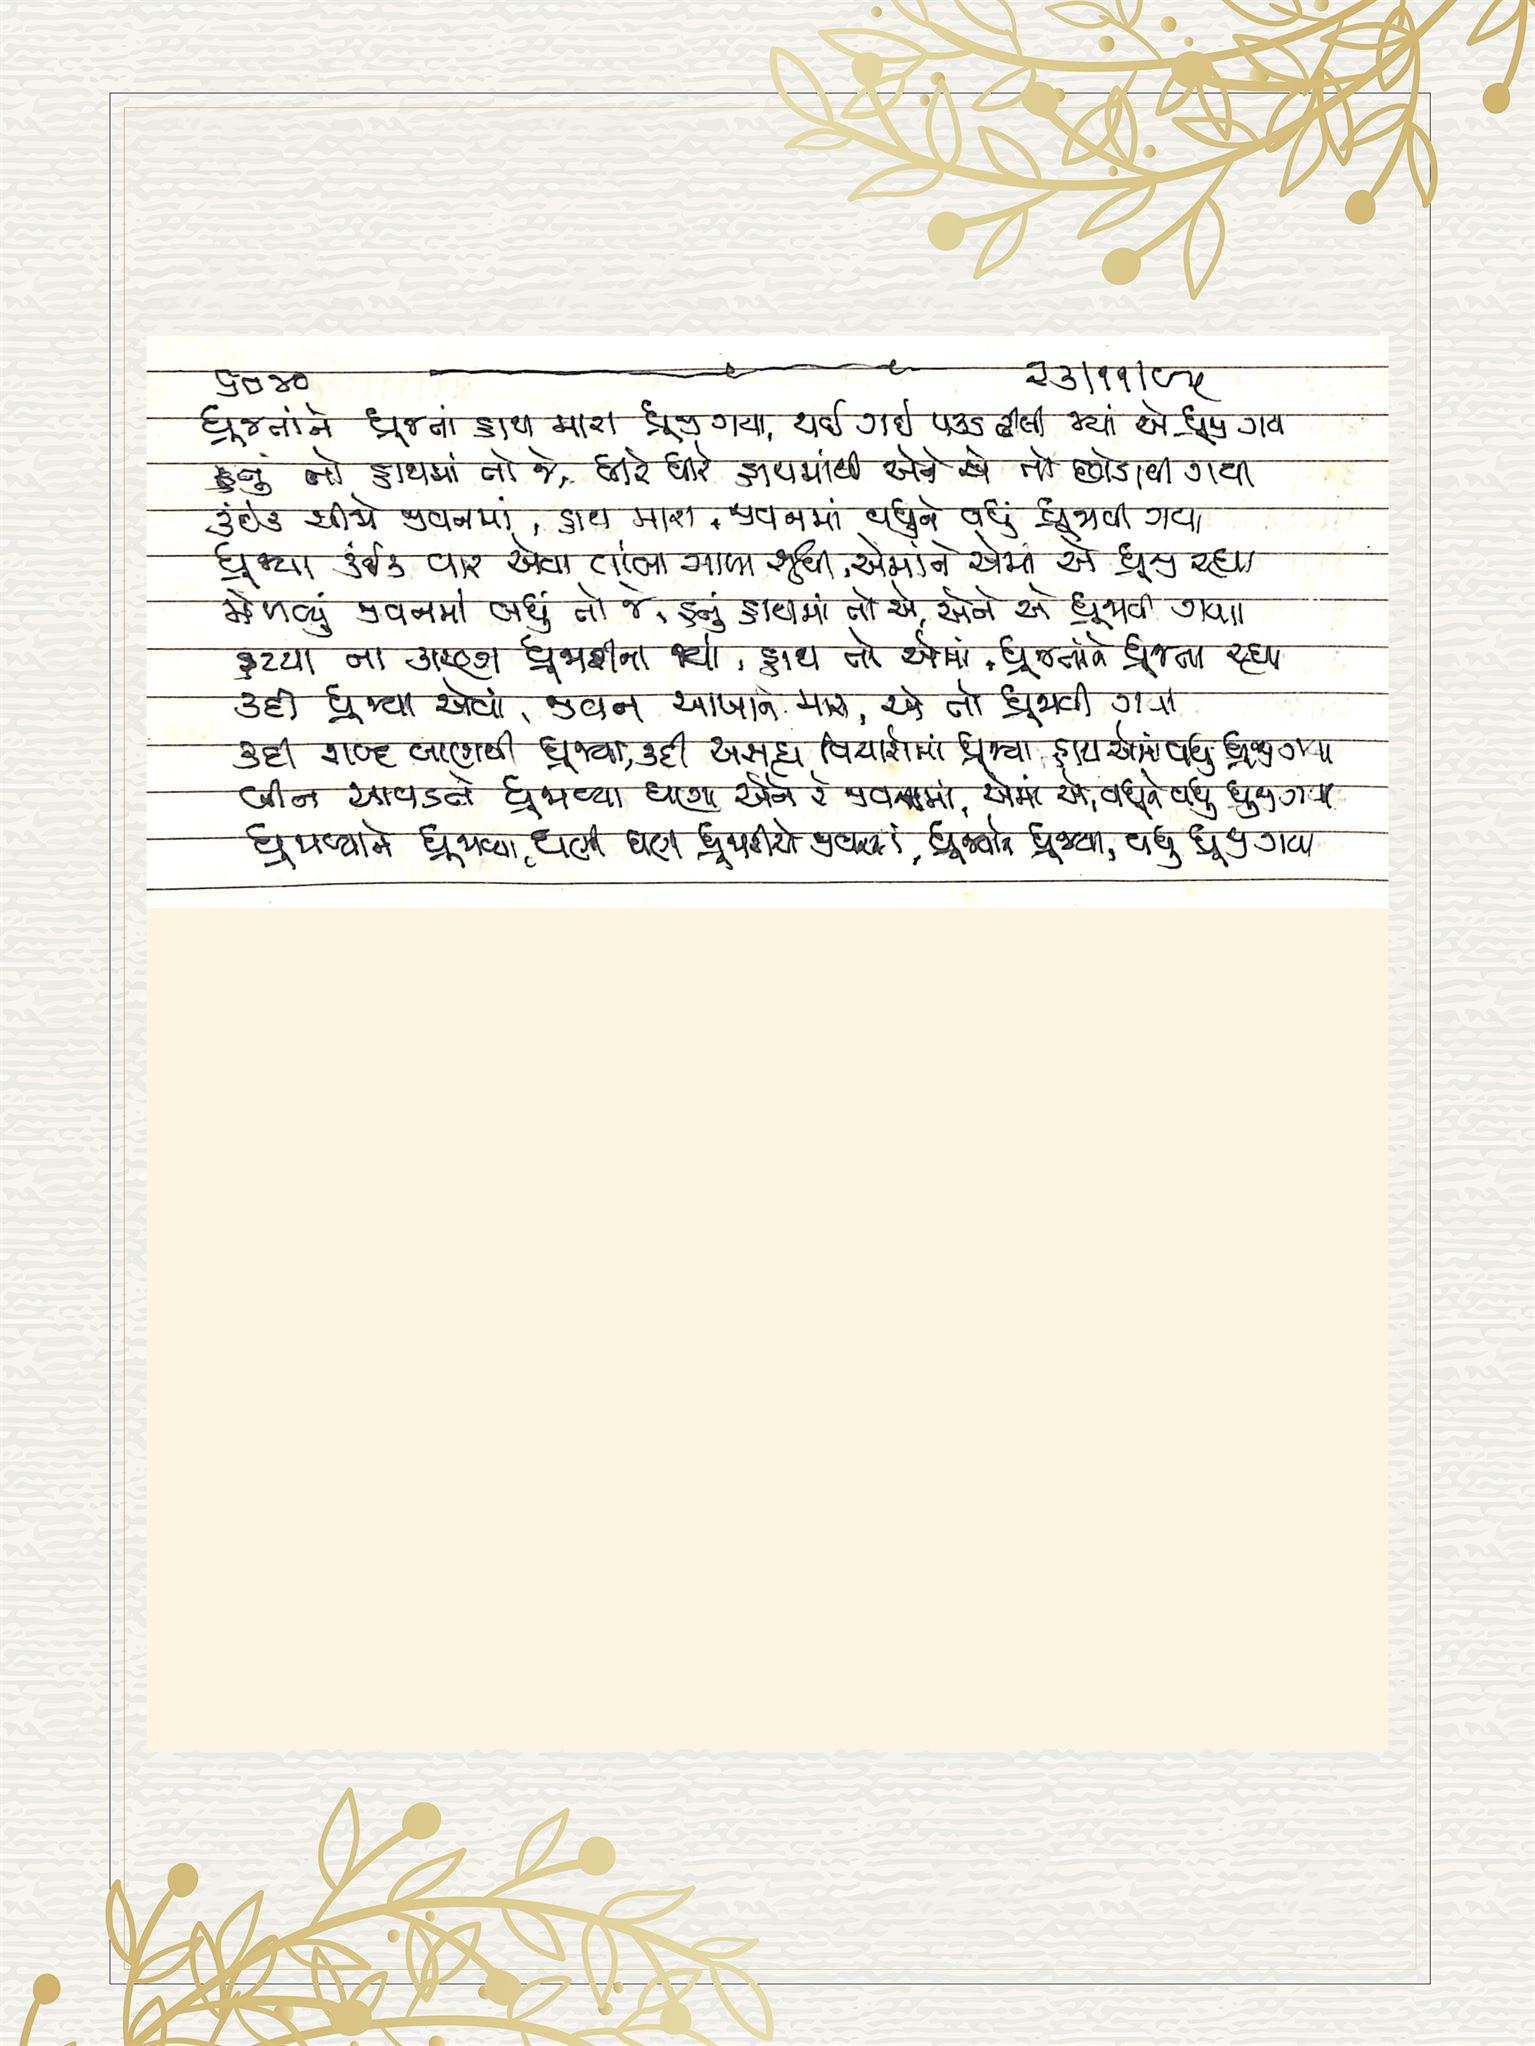 ૬૦૪૦ ૨૩/૧૧/૯૫
ધ્રૂજતાંને ધ્રૂજતાં હાથ મારા ધ્રૂજી ગયા, થઈ ગઈ પકડ ઢીલી જ્યાં એ ધ્રૂજી ગયા
હતું તો હાથમાં તો જે, ધીરે ધીરે હાથમાંથી એને એ તો છોડાવી ગયા
કંઈક ચીજો જીવનમાં, હાથ મારા, જીવનમાં વધુને વધું ધ્રૂજાવી ગયા
ધ્રૂજ્યા કંઈક વાર એવા લાંબા ગાળા સુધી, એમાંને એમાં એ ધ્રૂજી રહ્યા
મેળવ્યું જીવનમાં બધું તો જે, હતું હાથમાં તો એ, એને એ ધ્રૂજાવી ગયા
હટયા ના કારણ ધ્રૂજારીના જ્યાં, હાથ તો એમાં, ધ્રૂજતાંને ધ્રૂજતા રહ્યા
કદી ધ્રૂજ્યા એવાં, જીવન આખાને મારા, એ તો ધ્રૂજાવી ગયા
કદી શબ્દ બાણથી ધ્રૂજ્યા, કદી અસહ્ય વિચારોમાં ધ્રૂજ્યા હાથ એમાં વધુ ધ્રૂજી ગયા
બીન આવડતે ધ્રૂજાવ્યા ઘણા એને રે જીવનમાં, એમાં એ, વધુને વધુ ધ્રુજી ગયા
ધ્રૂજાવ્યાને ધ્રૂજાવ્યા, ઘણી ઘણી ધ્રૂજારીઓ જીવનમાં, ધ્રૂજ્યાને ધ્રૂજ્યા, વધુ ધ્રૂજી ગયા